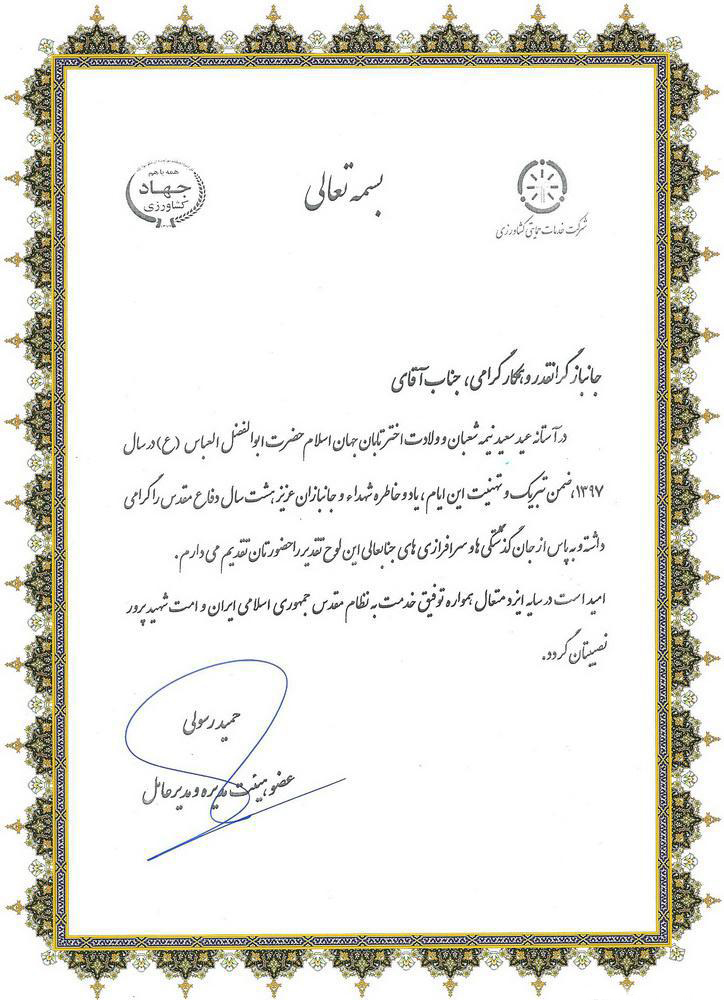 بسمه تعالی
همه با هم
جهاد
کشاورزی
شرکت خدمات حمایتی کشاورزی
جانباز گرانقدر و همکار گرامی، جناب آقای
در آستانه عید سعید نیمه شعبان و ولادت اختر تابان جهان اسلام حضرت ابوالفضل العباس (ع) در سال
۱۳۹۷، ضمن تبریک و تهنیت این ایام، یاد و خاطره شهداء و جانبازان عزیز هشت سال دفاع مقدس را گرامی
داشته و به پاس از جان گذشتگی ها و سرافرازی های جنابعالی این لوح تقدیر را حضورتان تقدیم می دارم.
امید است در سایه ایزد متعال همواره توفیق خدمت به نظام مقدس جمهوری اسلامی ایران و امت شهید پرور
نصیبتان گردد.
حمید رسولی
عضو هیئت مدیره و مدیرعامل